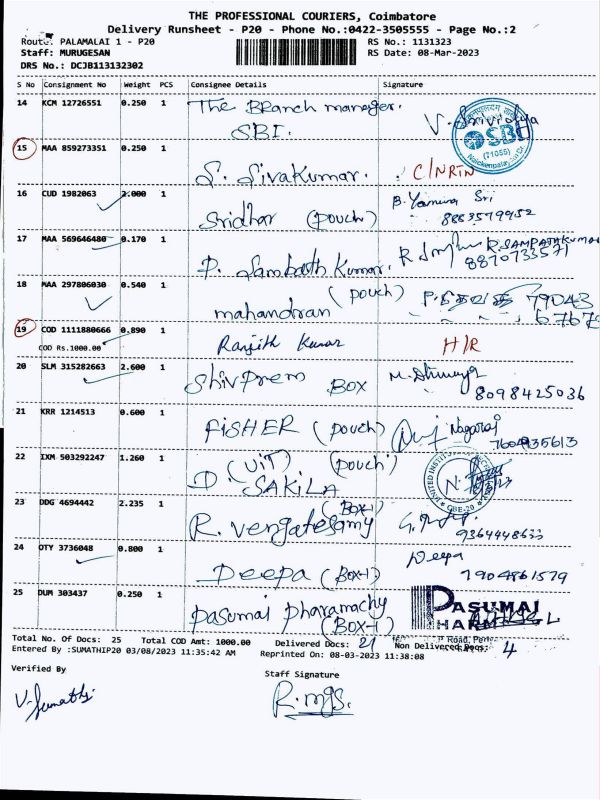 THE PROFESSIONAL COURIERS, Coimbatore
Delivery Runsheet - P20 - Phone No.:0422-3505555 - Page No.:2
Route: PALAMALAI 1 - P20 RS No.: 1131323
Staff: MURUGESAN RS Date: 08-Mar-2023
DRS No.: DCJB113132302
S No Consignment No Weight PCS Consignee Details Signature
14 KCM 12726551 0.250 1 The Branch manager.
SBI. V. Srividya
SBI
(71055)
15 MAA 859273351 0.250 1
S. Sivakumar. C/NRTN
16 CUD 1982063 2.000 1 B. Yamina Sri
Sridhar (pouch) 8883579952
17 MAA 569646480 0.170 1 R.SAMPATHKUMAR
P. Sambath Kumar. 8870733571
18 MAA 297806030 0.540 1 (pouch) 79043
mahandran 6767
19 COD 1111880666 0.890 1
COD Rs.1000.00 Ranjith Kumar H/R
20 SLM 315282663 2.600 1
Shivprem BOX 8098425036
21 KRR 1214513 0.600 1 Nagaraj
FISHER (pouch) 7604935613
22 IXM 503292247 1.260 1 (UIT) (pouch)
D. SAKILA
CBE-20
23 DDG 4694442 2.235 1 (Box-1)
R. Vengatesamy 9364448633
24 OTY 3736048 0.800 1 Deepa
Deepa (Box-1) 7904861579
25 DUM 303437 0.250 1 PASUMAI
Pasumai Pharamachy PHARM
(Box-1)
Total No. Of Docs: 25 Total COD Amt: 1000.00 Delivered Docs: 21 Non Delivered Docs: 4
Entered By :SUMATHIP20 03/08/2023 11:35:42 AM Reprinted On: 08-03-2023 11:38:08
Verified By Staff Signature
V. Sumathi
R. mgs.